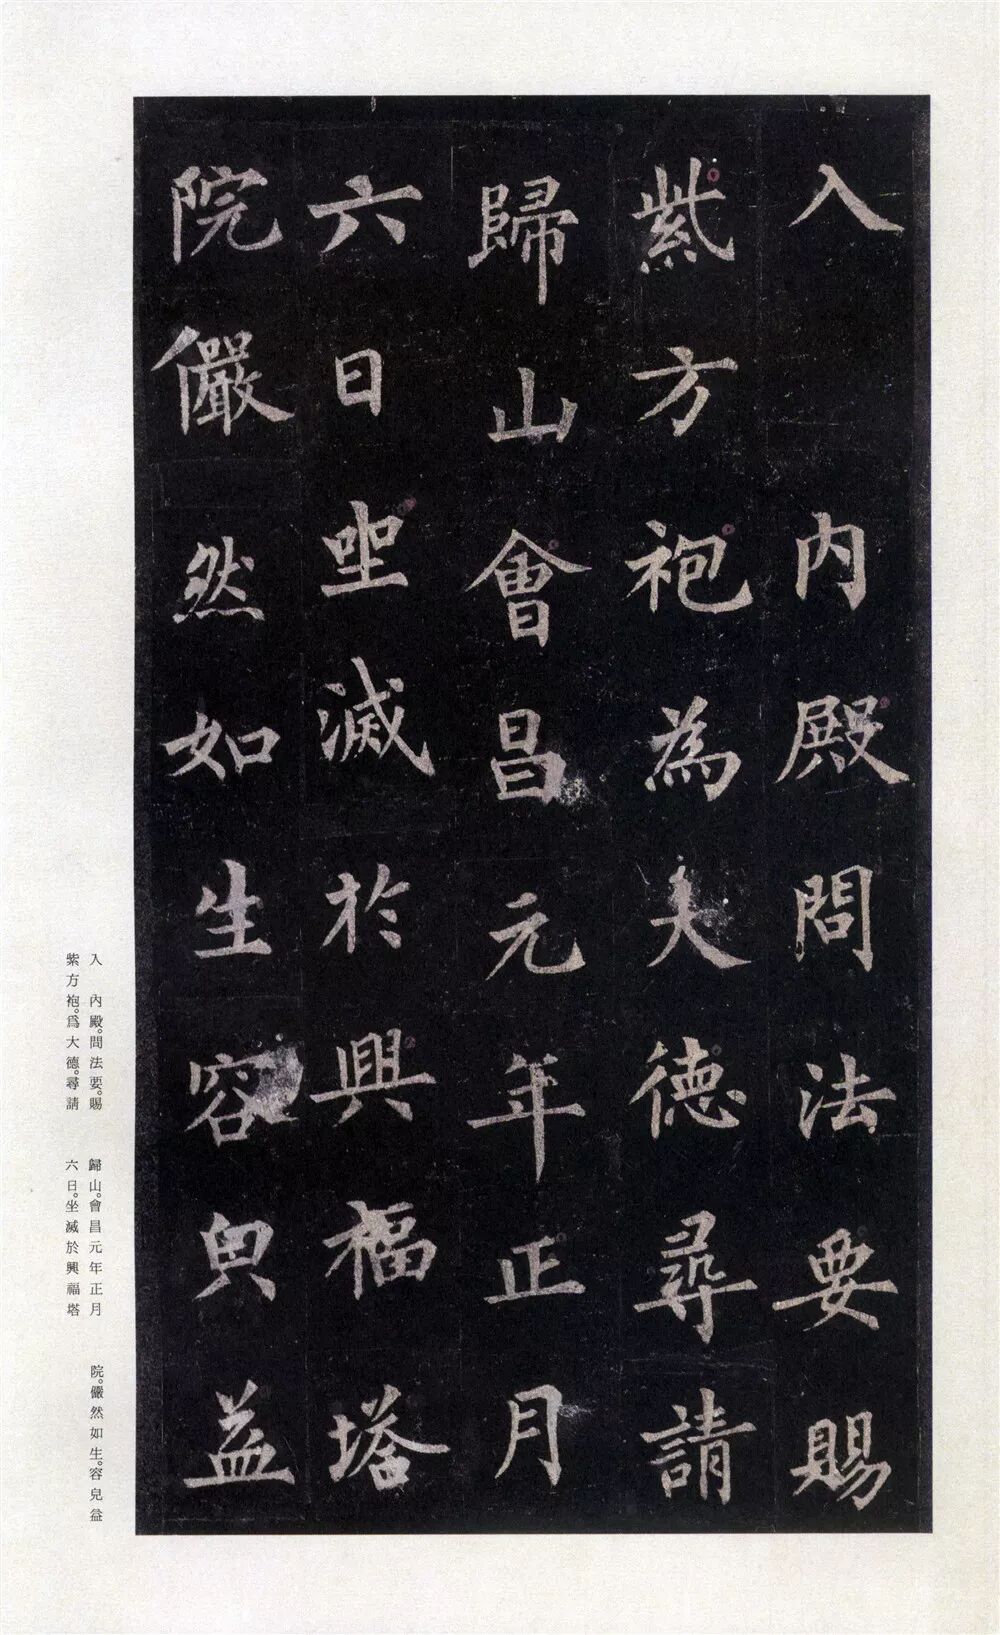 入 內殿問法要賜
紫方袍為大德尋請
歸山會昌元年正月
六日坐滅於興福塔
院儼然如生容皃益
入 內殿。問法要。賜
紫方袍。爲大德。尋請
歸山。會昌元年正月
六日。坐滅於興福塔
院。儼然如生。容皃益